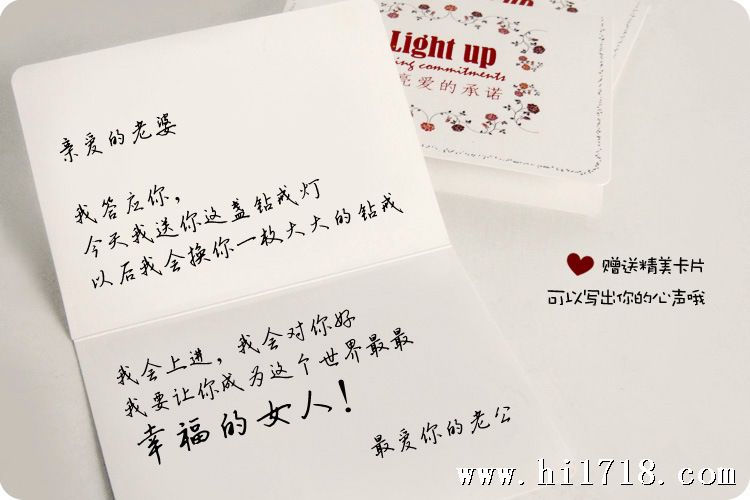 Light up
ing commitments
亮爱的承诺
亲爱的老婆
我答应你，
今天我送你这盏钻戒灯
以后我会换你一枚大大的钻戒
我会上进，我会对你好
我要让你成为这个世界最最
幸福的女人！
最爱你的老公
赠送精美卡片
可以写出你的心声哦
www.hi1718.com